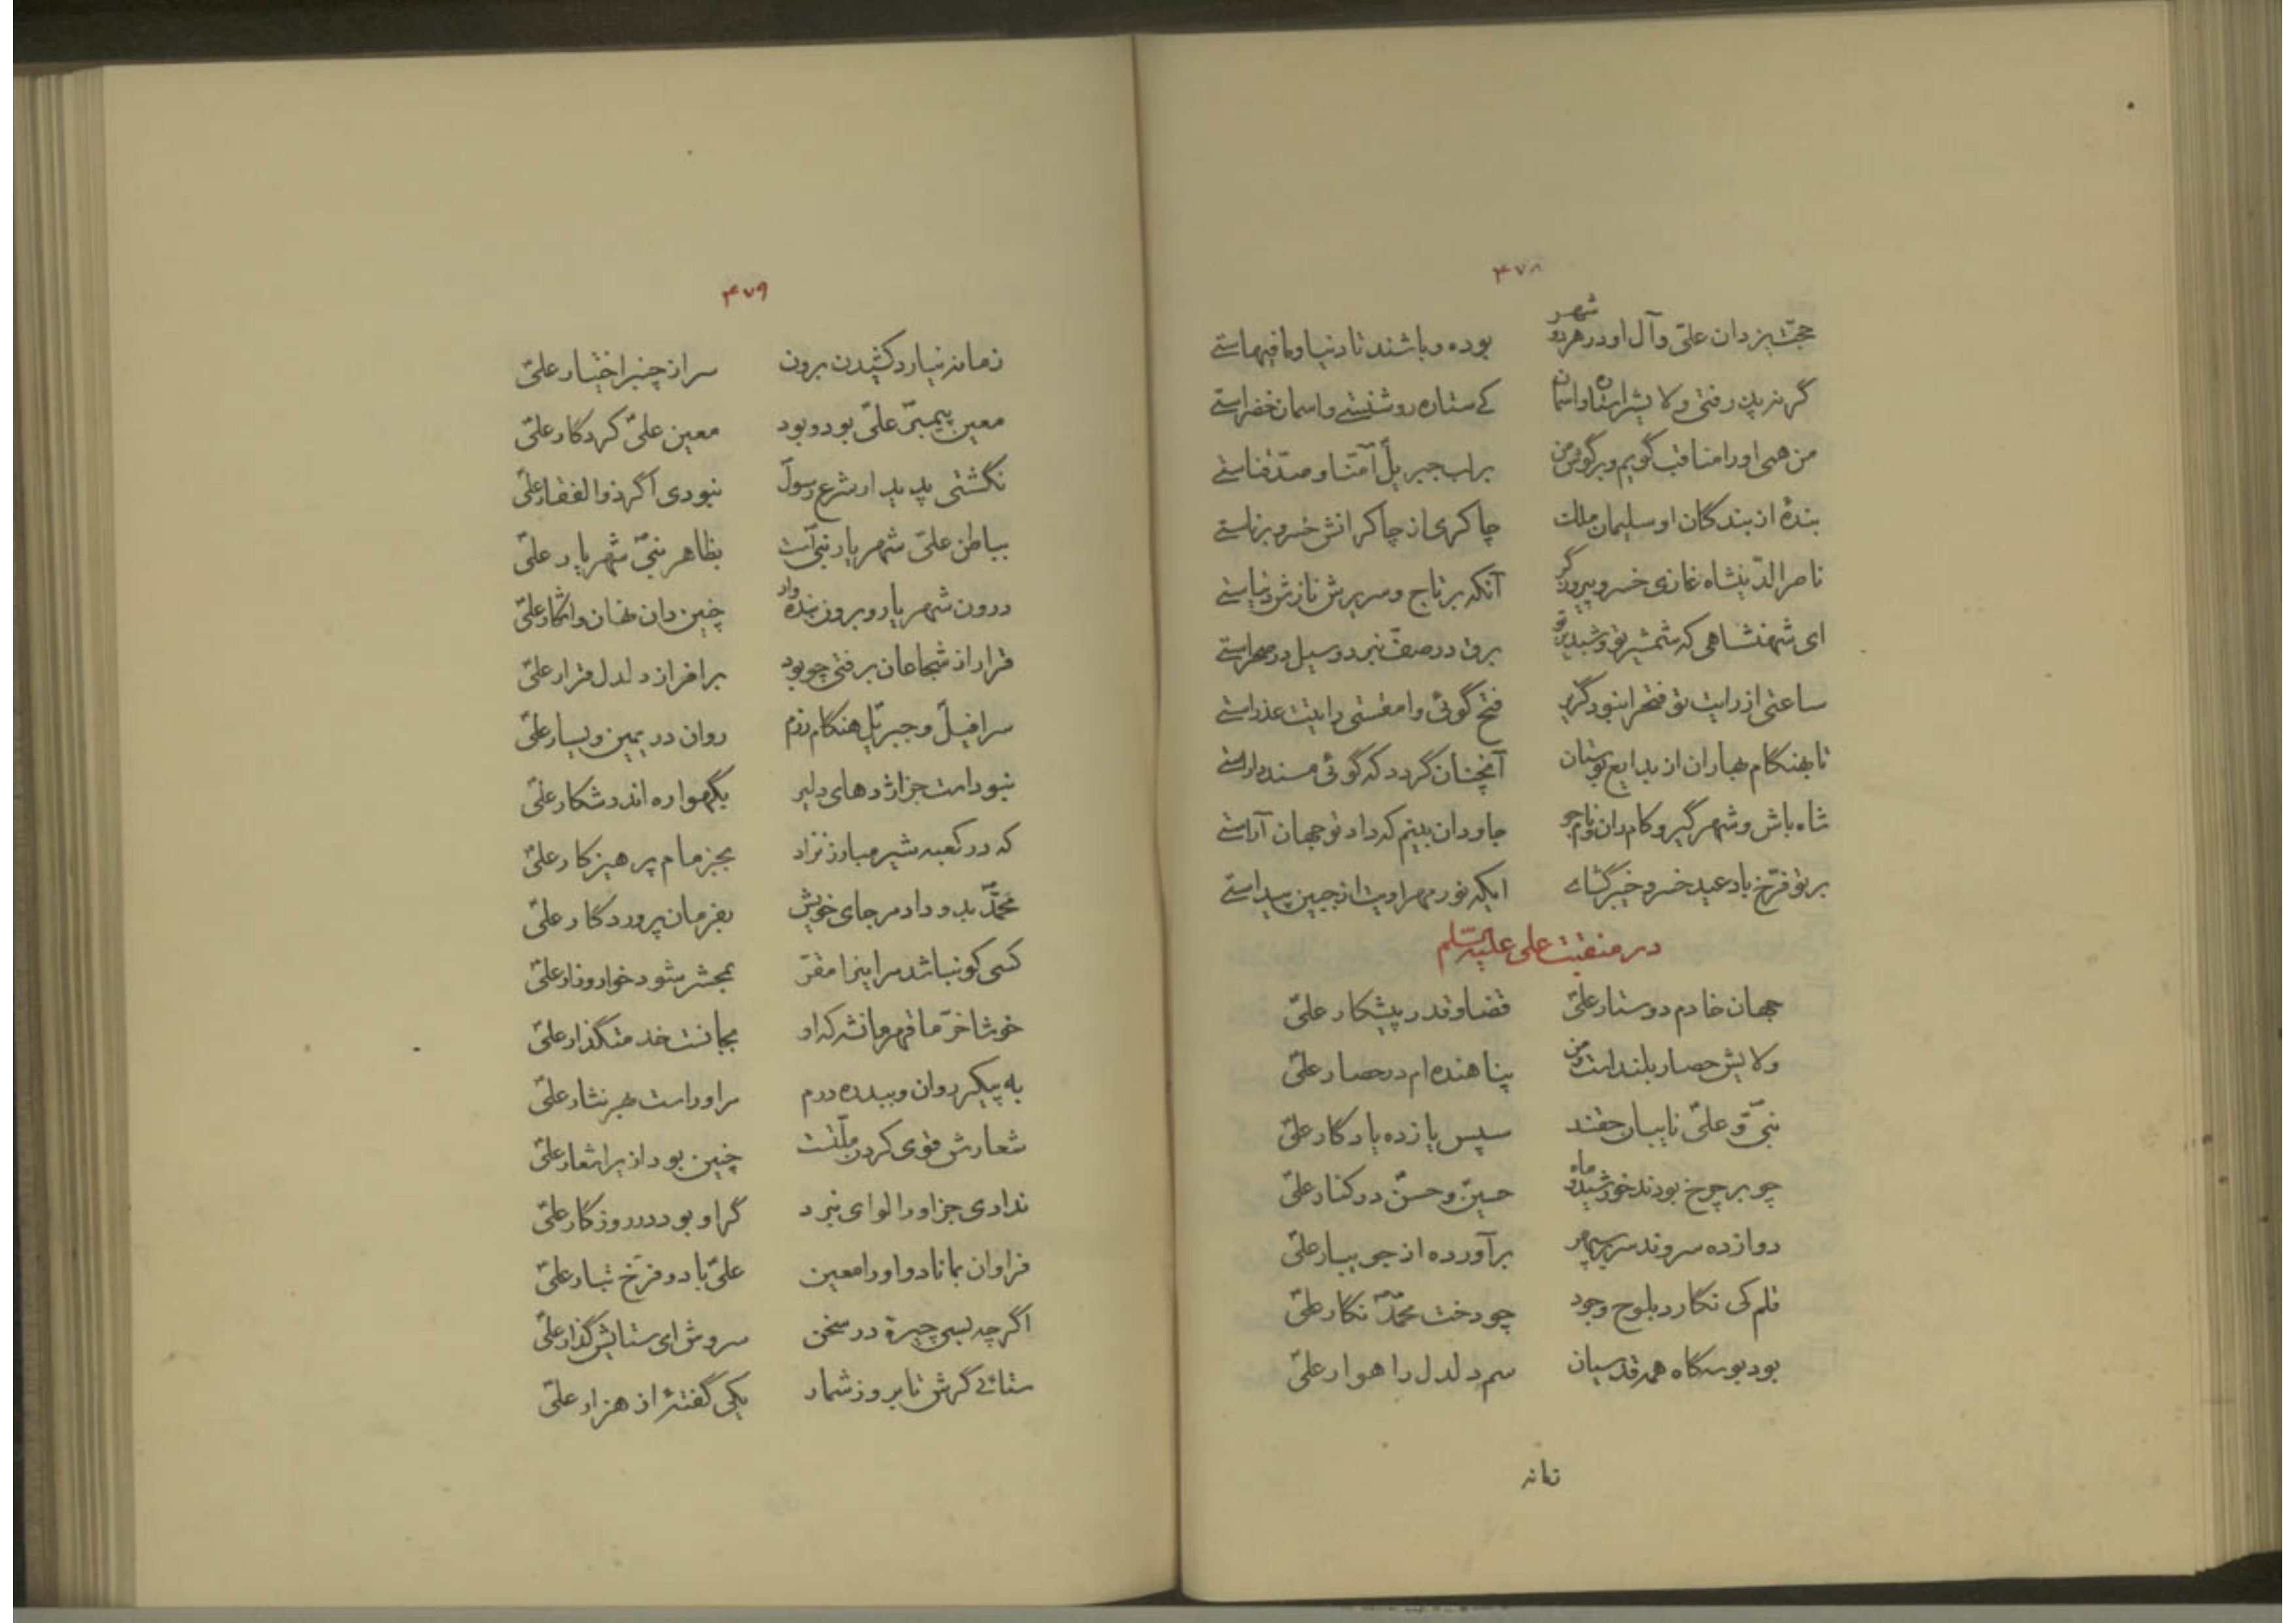 ۴۷۸
حجّت یزدان علی و آل او در هر دو شهر بوده و باشند تا دنیا و مافیهاستی
گر نپذیرفتی ولایشرا ستاره و آسمان کے ستاره روشنستی و آسمان خضراستی
من همی او را مناقب گویم و بر گوش من بر لب جبریل آمنّا و صدّقناستی
بندهٔ از بندکان او سلیمان ملک چاکری از چاکرانش خسرو برناستی
ناصر الدّینشاه غازی خسرو پیروزگر آنکه بر تاج و سریرش نازش دنیاستی
ای شهنشاهی که شمشیر تو و شبدیز تو برق در صفّ نبرد و سیل در صحراستی
ساعتی از رایت تو فتحرا نبود گزیر فتح گوئی وامقستی رایتت عذراستی
تا بهنکام بهاران از بدایع بوستان آنچنان گردد که گوئی مسند داراستی
شاه باش و شهر گیر و کام ران و نام جو جاودان بینم که داد تو جهان آراستی
بر تو فرّخ باد عید خسرو خیبر گشاے ایکه نور مهر اویت از جبین پیداستی
در منقبت علی علیه السّلم
جهان خادم دوستار علیّ قضا و قدر پیشکار علیّ
ولایش حصار بلند است و من پناهنده ام در حصار علیّ
نبیّ و علیّ نایبان حقند سپس یازده یادکار علیّ
چو بر چرخ بودند خورشید و ماه حسین و حسن در کنار علیّ
دوازده سروند سر بر سپهر برآورده از جویبار علیّ
قلم کی نکارد بلوح وجود چو دخت محمّد نکار علیّ
بود بوسکاه همه قدسیان سم دلدل راهوار علیّ
زمانه
۴۷۹
زمانه نیارد کشیدن برون سر از چنبر اختیار علیّ
معین پیمبر علیّ بود و بود معین علیّ کردکار علیّ
نگشتی پدیدار شرع رسول نبودی اگر ذوالفقار علیّ
بباطن علیّ شهریار نبیّ است بظاهر نبیّ شهریار علیّ
درون شهریار و برون بنده وار چنین دان نهان و آشکار علیّ
قرار از شجاعان برفتی چو بود بر افراز دلدل قرار علیّ
سرافیل و جبریل هنکام رزم روان در یمین و یسار علیّ
نبود است جز اژدهای دلیر بگهواره اندر شکار علیّ
که در کعبه شیر مبارز نزاد بجز مام پرهیزکار علیّ
محمّد بدو داد مر جای خویش بفرمان پروردکار علیّ
کسی کو نباشد مر اینرا مقرّ بمحشر شود خوار و زار علیّ
خوشا خرّما قهرمانشه که او بجانست خدمتگذار علیّ
به پیکر روان و ببدره درم مر او راست بهر نثار علیّ
شعارش قوی کردن ملّتست چنین بود ازیرا شعار علیّ
ندادی جز او را لوای نبرد گر او بود در روزکار علیّ
فراوان بماناد و او را معین علیّ باد و فرّخ تبار علیّ
اگر چه بسی چیرهٔ در سخن سروش ای ستایش گذار علیّ
ستائے گرش تا بروز شمار یکی گفتهٔ از هزار علیّ